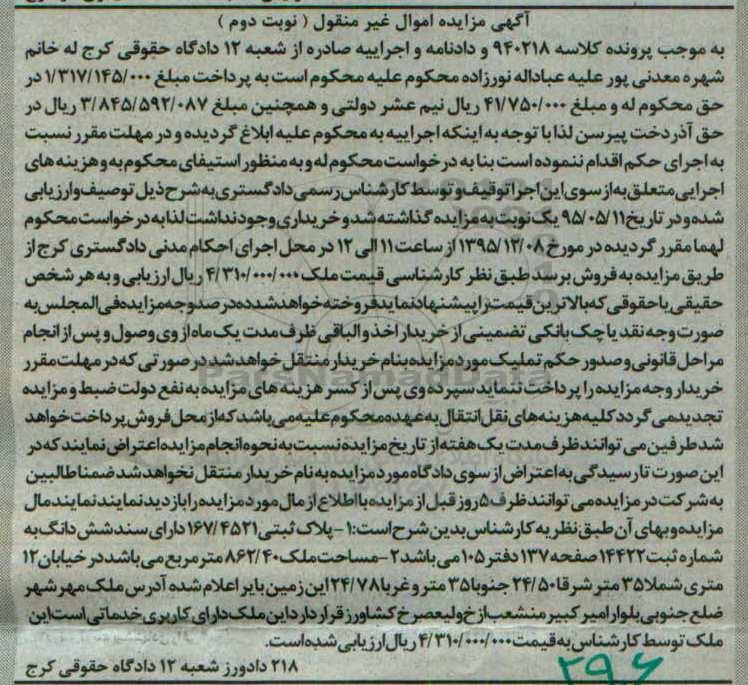 آگهی مزایده اموال غیر منقول ( نوبت دوم )
به موجب پرونده کلاسه ۹۴۰۲۱۸ و دادنامه و اجراییه صادره از شعبه ۱۲ دادگاه حقوقی کرج له خانم
شهره معدنی پور علیه عباداله نورزاده محکوم علیه محکوم است به پرداخت مبلغ ۱/۳۱۷/۱۴۵/۰۰۰ در
حق محکوم له و مبلغ ۴۱/۷۵۰/۰۰۰ ریال نیم عشر دولتی و همچنین مبلغ ۳/۸۴۵/۵۹۲/۰۸۷ ریال در
حق آذردخت پیرسن لذا با توجه به اینکه اجراییه به محکوم علیه ابلاغ گردیده و در مهلت مقرر نسبت
به اجرای حکم اقدام ننموده است بنا به درخواست محکوم له و به منظور استیفای محکوم به و هزینه های
اجرایی متعلق به از سوی این اجرا توقیف و توسط کارشناس رسمی دادگستری به شرح ذیل توصیف و ارزیابی
شده و در تاریخ ۹۵/۰۵/۱۱ یک نوبت به مزایده گذاشته شد و خریداری وجود نداشت لذا به درخواست محکوم
لهما مقرر گردیده در مورخ ۱۳۹۵/۱۲/۰۸ از ساعت ۱۱ الی ۱۲ در محل اجرای احکام مدنی دادگستری کرج از
طریق مزایده به فروش برسد طبق نظر کارشناسی قیمت ملک ۴/۳۱۰/۰۰۰/۰۰۰ ریال ارزیابی و به هر شخص
حقیقی یا حقوقی که بالاترین قیمت را پیشنهاد نماید فروخته خواهد شد ده درصد وجه مزایده فی المجلس به
صورت وجه نقد یا چک بانکی تضمینی از خریدار اخذ و الباقی ظرف مدت یک ماه از وی وصول و پس از انجام
مراحل قانونی و صدور حکم تملیک مورد مزایده بنام خریدار منتقل خواهد شد در صورتی که در مهلت مقرر
خریدار وجه مزایده را پرداخت ننماید سپرده وی پس از کسر هزینه های مزایده به نفع دولت ضبط و مزایده
تجدید می گردد کلیه هزینه های نقل انتقال به عهده محکوم علیه می باشد که از محل فروش پرداخت خواهد
شد طرفین می توانند ظرف مدت یک هفته از تاریخ مزایده نسبت به نحوه انجام مزایده اعتراض نمایند که در
این صورت تا رسیدگی به اعتراض از سوی دادگاه مورد مزایده به نام خریدار منتقل نخواهد شد ضمنا طالبین
به شرکت در مزایده می توانند ظرف ۵ روز قبل از مزایده با اطلاع از مال مورد مزایده را بازدید نمایند نمایند مال
مزایده و بهای آن طبق نظریه کارشناس بدین شرح است: ۱- پلاک ثبتی ۱۶۷/۴۵۲۱ دارای سند شش دانگ به
شماره ثبت ۱۴۴۲۲ صفحه ۱۳۷ دفتر ۱۰۵ می باشد ۲- مساحت ملک ۸۶۲/۴۰ متر مربع می باشد در خیابان ۱۲
متری شملا ۳۵ متر شرقا ۲۴/۵۰ جنوبا ۳۵ متر و غربا ۲۴/۷۸ این زمین بایر اعلام شده آدرس ملک مهرشهر
ضلع جنوبی بلوار امیر کبیر منشعب از خ ولیعصر خ کشاورز قرار دارد این ملک دارای کاربری خدماتی است این
ملک توسط کارشناس به قیمت ۴/۳۱۰/۰۰۰/۰۰۰ ریال ارزیابی شده است.
۲۱۸ دادورز شعبه ۱۲ دادگاه حقوقی کرج
۲۹۰۶
ParsNamadData